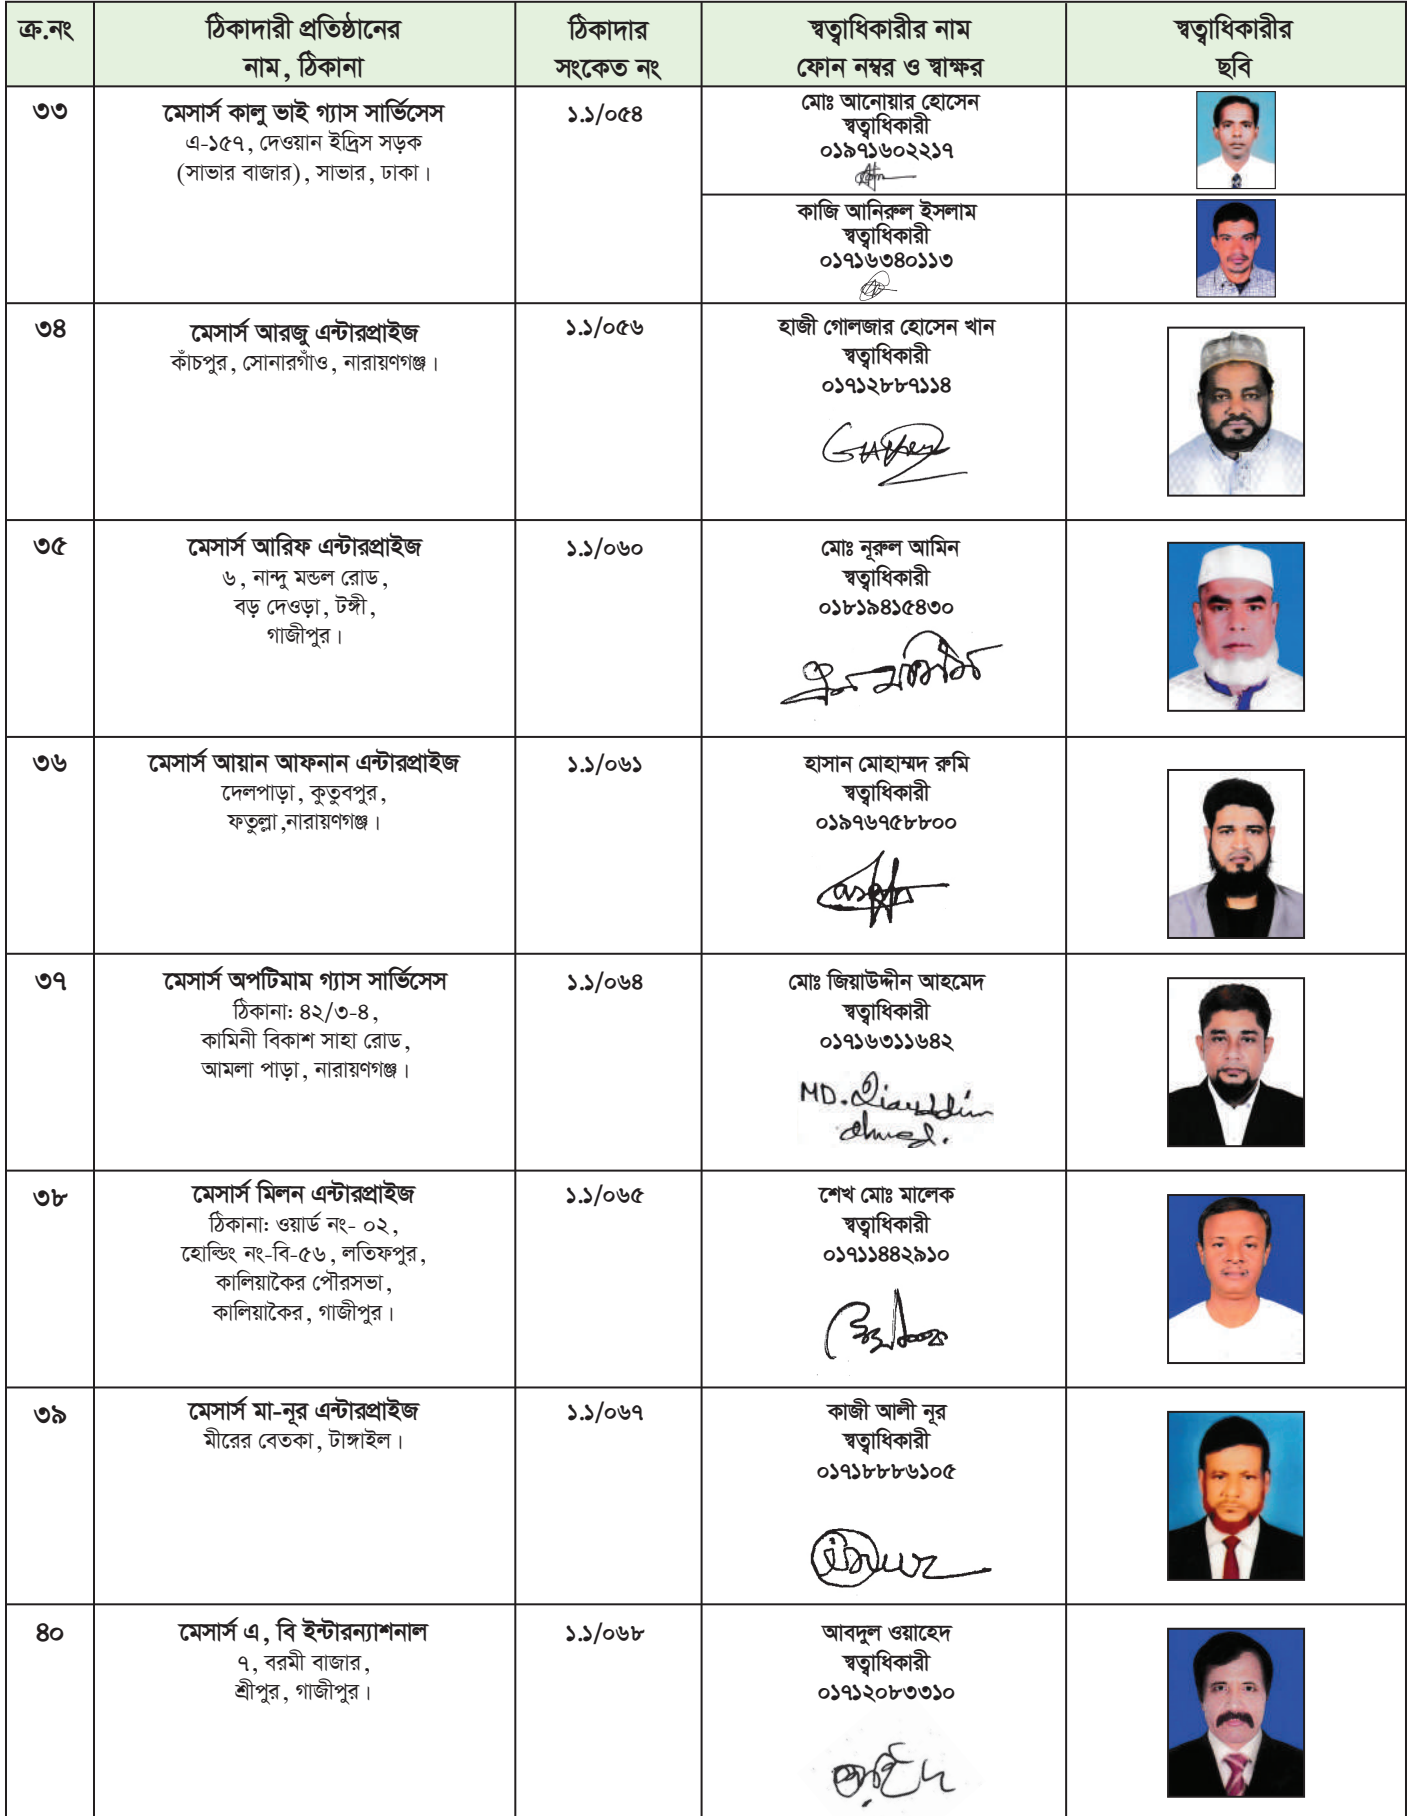 ক্র.নং
ঠিকাদারী প্রতিষ্ঠানের
নাম, ঠিকানা
ঠিকাদার
সংকেত নং
স্বত্বাধিকারীর নাম
ফোন নম্বর ও স্বাক্ষর
স্বত্বাধিকারীর
ছবি
৩৩
মেসার্স কালু ভাই গ্যাস সার্ভিসেস
এ-১৫৭, দেওয়ান ইদ্রিস সড়ক
(সাভার বাজার), সাভার, ঢাকা।
১.১/০৫৪
মোঃ আনোয়ার হোসেন
স্বত্বাধিকারী
০১৯৭১৬০২২১৭
কাজি আনিরুল ইসলাম
স্বত্বাধিকারী
০১৭১৬৩৪০১১৩
৩৪
মেসার্স আরজু এন্টারপ্রাইজ
কাঁচপুর, সোনারগাঁও, নারায়ণগঞ্জ।
১.১/০৫৬
হাজী গোলজার হোসেন খান
স্বত্বাধিকারী
০১৭১২৮৮৭১১৪
৩৫
মেসার্স আরিফ এন্টারপ্রাইজ
৬, নান্দু মন্ডল রোড,
বড় দেওড়া, টঙ্গী,
গাজীপুর।
১.১/০৬০
মোঃ নূরুল আমিন
স্বত্বাধিকারী
০১৮১৯৪১৫৪৩০
৩৬
মেসার্স আয়ান আফনান এন্টারপ্রাইজ
দেলপাড়া, কুতুবপুর,
ফতুল্লা,নারায়ণগঞ্জ।
১.১/০৬১
হাসান মোহাম্মদ রুমি
স্বত্বাধিকারী
০১৯৭৬৭৫৮৮০০
৩৭
মেসার্স অপটিমাম গ্যাস সার্ভিসেস
ঠিকানা: ৪২/৩-৪,
কামিনী বিকাশ সাহা রোড,
আমলা পাড়া, নারায়ণগঞ্জ।
১.১/০৬৪
মোঃ জিয়াউদ্দীন আহমেদ
স্বত্বাধিকারী
০১৭১৬৩১১৬৪২
MD. Ziauddin
Ahmed.
৩৮
মেসার্স মিলন এন্টারপ্রাইজ
ঠিকানা: ওয়ার্ড নং- ০২,
হোল্ডিং নং-বি-৫৬, লতিফপুর,
কালিয়াকৈর পৌরসভা,
কালিয়াকৈর, গাজীপুর।
১.১/০৬৫
শেখ মোঃ মালেক
স্বত্বাধিকারী
০১৭১১৪৪২৯১০
৩৯
মেসার্স মা-নূর এন্টারপ্রাইজ
মীরের বেতকা, টাঙ্গাইল।
১.১/০৬৭
কাজী আলী নূর
স্বত্বাধিকারী
০১৭১৮৮৮৬১০৫
৪০
মেসার্স এ, বি ইন্টারন্যাশনাল
৭, বরমী বাজার,
শ্রীপুর, গাজীপুর।
১.১/০৬৮
আবদুল ওয়াহেদ
স্বত্বাধিকারী
০১৭১২০৮৩৩১০